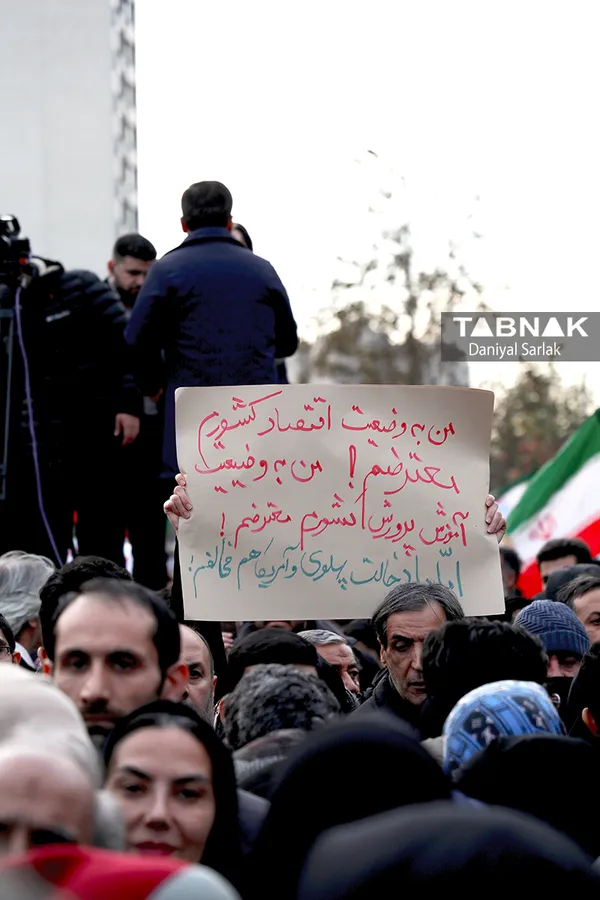 TABNAK
Daniyal Sarlak
من به وضعیت اقتصاد کشورم
معترضم! من به وضعیت
آموزش پرورش کشورم معترضم!
امّا با دخالت پهلوی و آمریکا هم مخالفم!